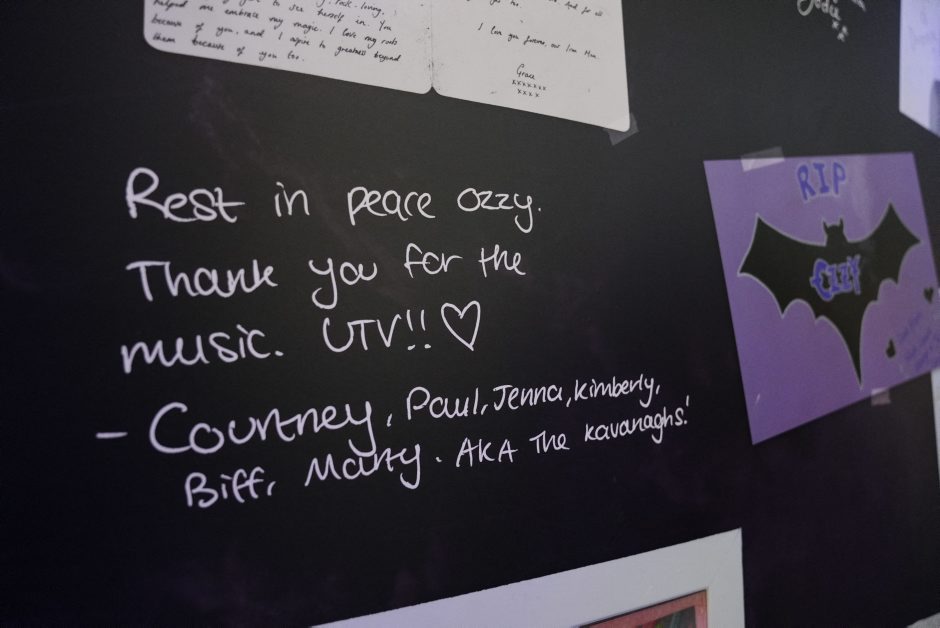 to see herself in. You
helped me embrace my magic. I love my roots
because of you, and I aspire to greatness beyond
them because of you too.
And for all
I love you forever, our
Grace
xxxxxxx
xxxx
Rest in peace Ozzy.
Thank you for the
music. UTV!! ♡
- Courtney, Paul, Jenna, Kimberly,
Biff, Marty. AKA The Kavanaghs!
RIP
OZZY